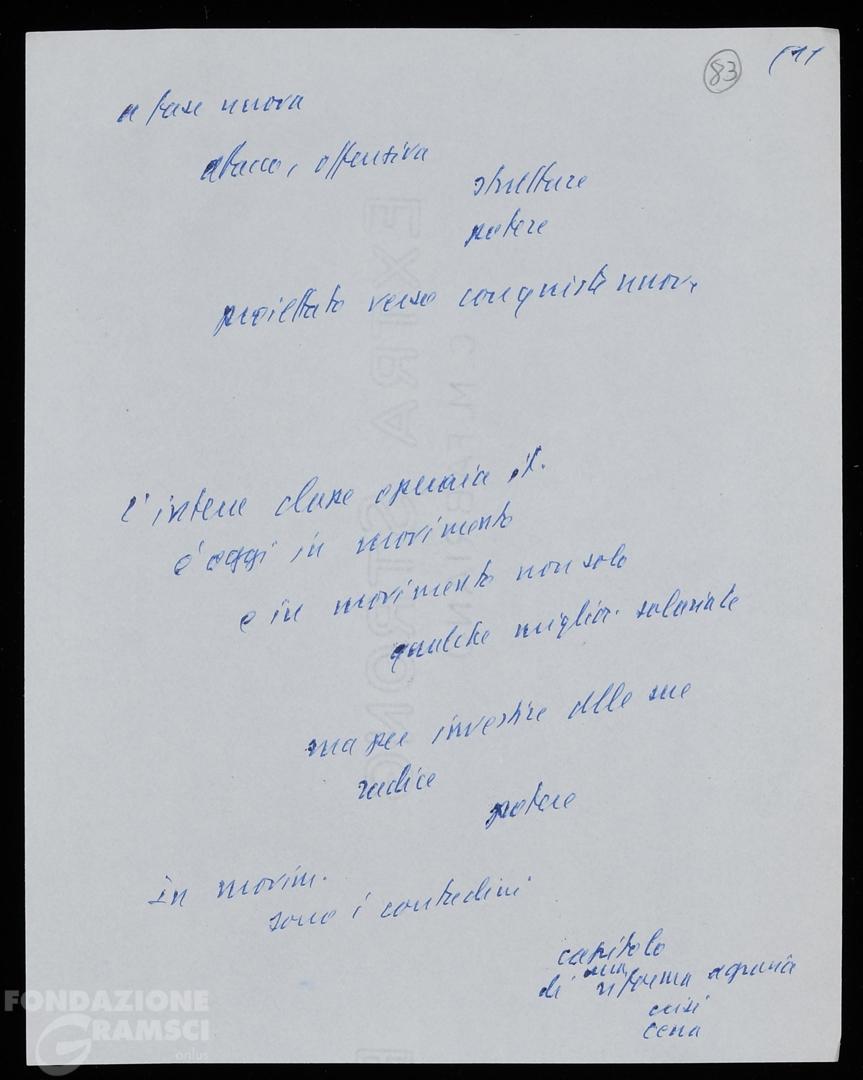 83
a fase nuova
attacco, offensiva
strutture
potere
proiettato verso conquiste nuove
l'intera classe operaia it.
è oggi in movimento
e in movimento non solo
qualche miglior. salariale
ma per investire alla sua
radice
potere
In movim.
sono i contadini
capitolo
di una riforma agraria
crisi
EXTRA STRONG
C. M. FABRIANO
FONDAZIONE
GRAMSCI
onlus